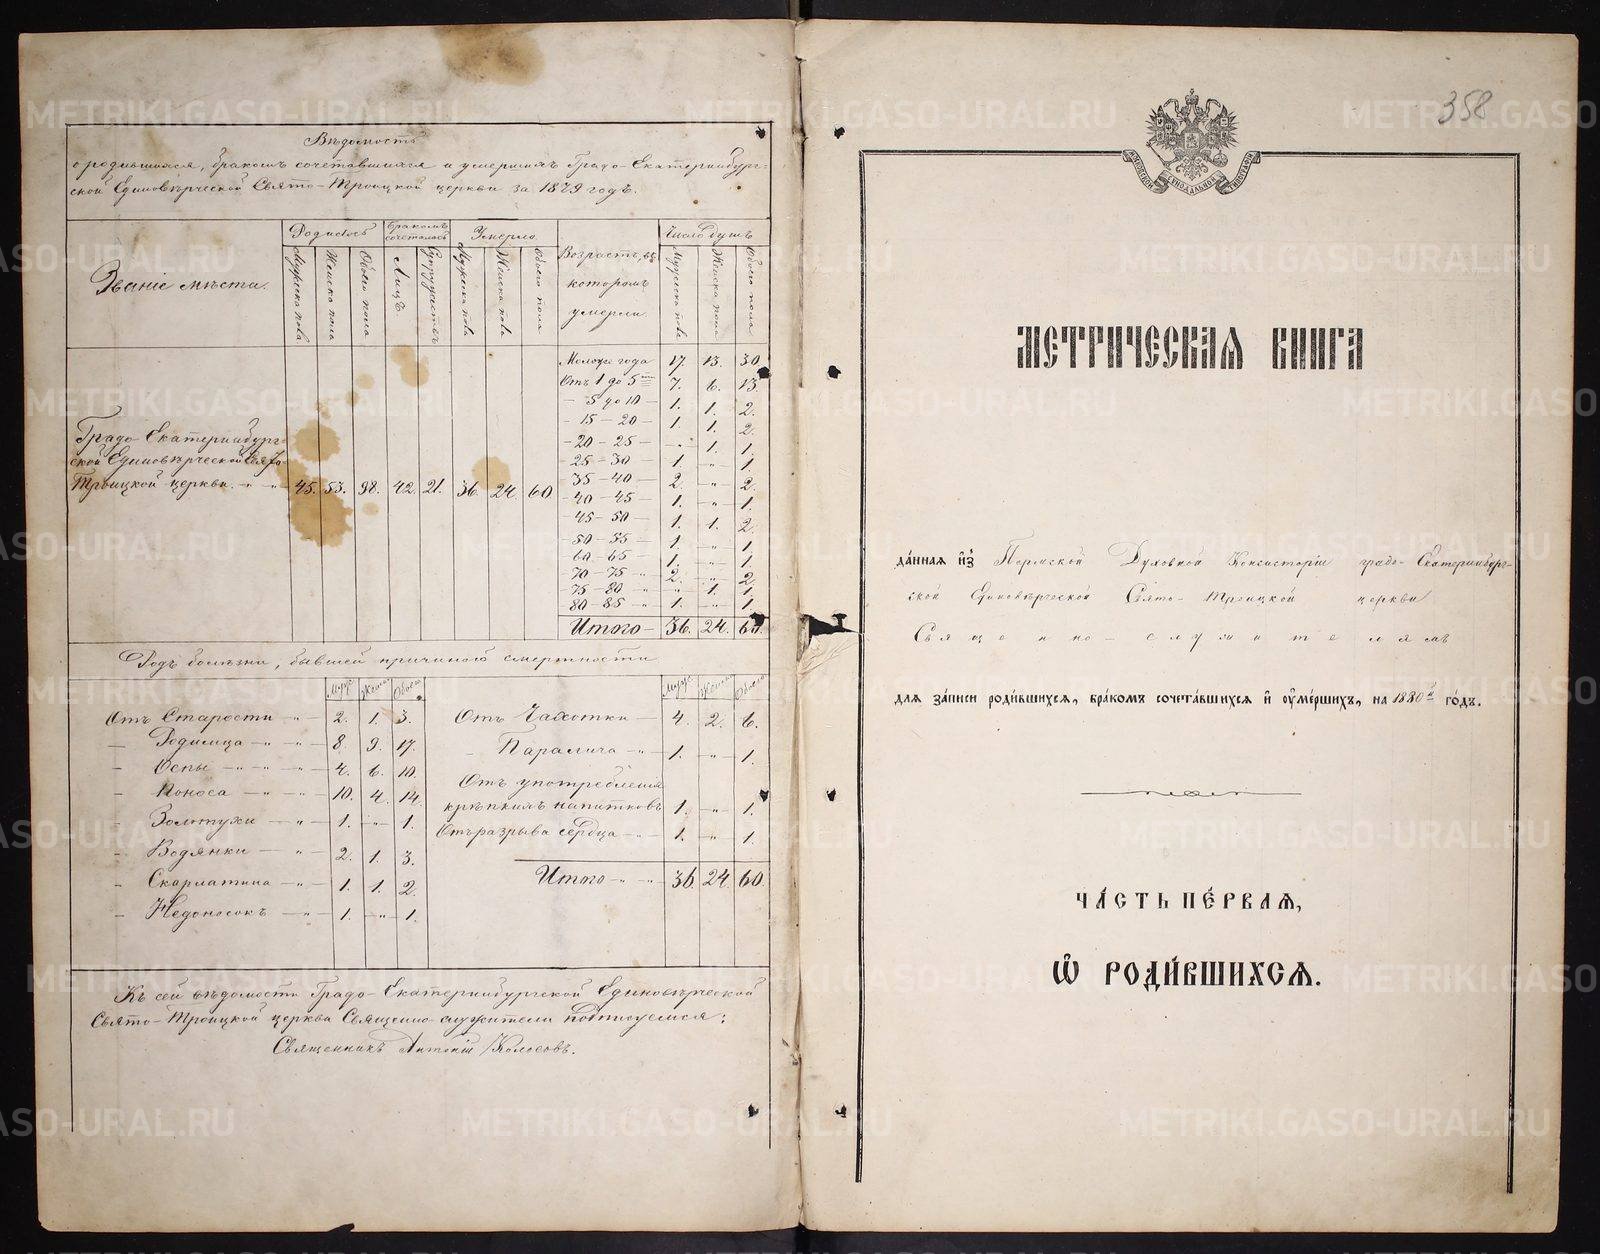 Вѣдомость
о родившихся, бракомъ сочетавшихся и умершихъ Градо-Екатеринбург-
ской Единовѣрческой Свято-Троицкой церкви за 1879 годъ.
Званіе мѣста.
Родилось
Бракомъ сочеталось
Умерло
Возрастъ, въ
которомъ
умерли
Число душъ
Мужеска пола
Женска пола
Обоего пола
Лицъ
Супружествъ
Мужеска пола
Женска пола
Обоего пола
Мужеска пола
Женска пола
Обоего пола
Градо-Екатеринбург-
ской Единовѣрческой Свято-
Троицкой церкви. 45. 53. 98. 42. 21. 36. 24. 60
Моложе года 17. 13. 30
Отъ 1 до 5 7. 6. 13
5 до 10 1. 1. 2.
15-20 1. 1. 2.
20-25 - 1. 1.
25-30 1. " 1.
35-40 2. " 2.
40-45 1. " 1.
45-50 1. 1. 2.
50-55 1. " 1.
60-65 1. " 1.
70-75 2. " 2.
75-80 " 1. 1.
80-85 1. " 1.
Итого 36. 24. 60.
Родъ болѣзни, бывшей причиною смертности
Муж. Женск. Обоего
Отъ Старости 2. 1. 3.
Родимца 8. 9. 17.
Оспы 4. 6. 10.
Поноса 10. 4. 14.
Золотухи 1. " 1.
Водянки 2. 1. 3.
Скарлатина 1. 1. 2
Недоносокъ 1. " 1.
Муж. Женск. Обоего
Отъ Чахотки 4. 2. 6.
Паралича 1. " 1.
Отъ употребленія
крѣпкихъ напитковъ 1. " 1.
Отъ разрыва сердца 1. " 1.
Итого 36. 24. 60.
Къ сей вѣдомости Градо-Екатеринбургской Единовѣрческой
Свято-Троицкой церкви Священно-служители подписуемся:
Священникъ Антоній Колосовъ.
358
МОСКОВСКОЙ СѴНОДАЛЬНОЙ ТИПОГРАФІИ
МЕТРИЧЕСКАЯ КНИГА
да́нная и҆з̾ Пермской Духовной Консисторіи градо-Екатеринбург-
ской Единовѣрческой Свято-Троицкой церкви
Священно-служителямъ
для за́писи роди́вшихся, бра́комъ сочета́вшихся и҆ ᲂу҆ме́ршихъ, на 1880й го́дъ.
ЧА́СТЬ ПЕ́РВАЯ,
Ѽ РОДИ́ВШИХСЯ.
METRIKI.GASO-URAL.RU